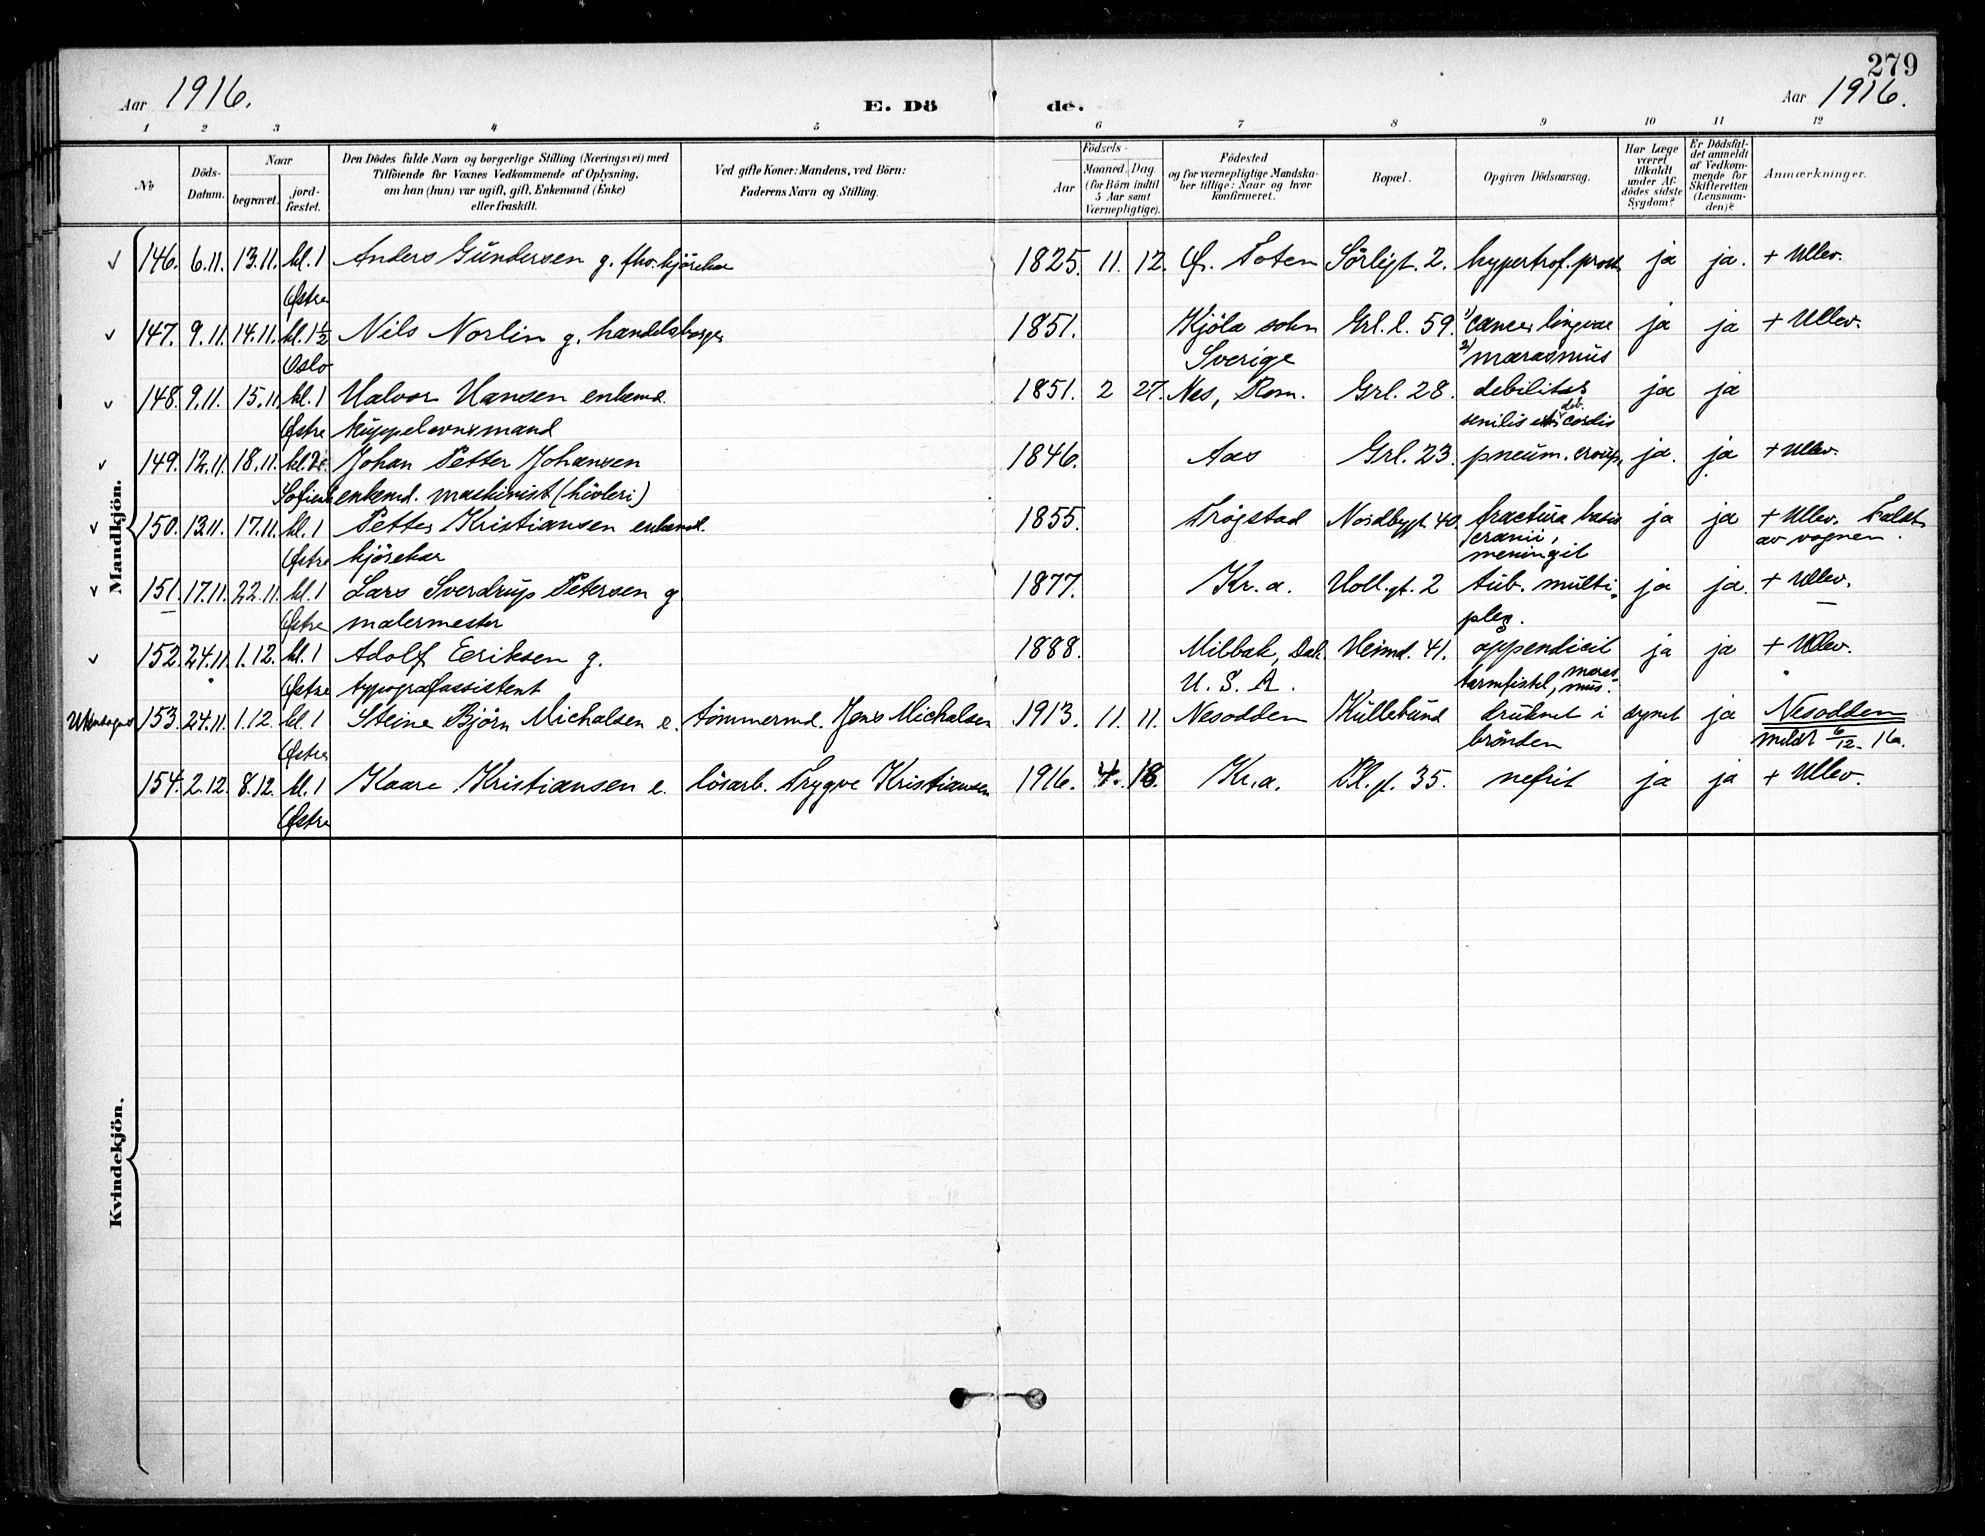 279
Aar 1916.
E. Dö de.
Aar 1916.
1 2 3 4 5 6 7 8 9 10 11 12
No
Döds-
Datum.
Naar
begravet.
jord-
fæstet.
Den Dödes fulde Navn og borgerlige Stilling (Næringsvei) med
Tilföiende for Voxnes Vedkommende af Oplysning,
om han (hun) var ugift, gift, Enkemand (Enke)
eller fraskilt.
Ved gifte Koner: Mandens, ved Börn:
Faderens Navn og Stilling.
Födsels-
Aar
Maaned. Dag.
(for Börn indtil
5 Aar samt
Værnepligtige).
Födested
og for værnepligtige Mandska-
ber tillige: Naar og hvor
konfirmeret.
Bopæl.
Opgiven Dödsaarsag.
Har Læge
været
tilkaldt
under Af-
dödes sidste
Sygdom?
Er Dödsfal-
det anmeldt
af Vedkom-
mende for
Skifteretten
(Lensman-
den)?
Anmærkninger.
Mandkjön.
146. 6.11. 13.11. kl. 1 Anders Gundersen g. fho. kjörekar 1825. 11. 12. Ø. Toten Sörligt. 2. hypertrof. prost. ja ja. + Ullev.
Østre
147. 9.11. 14.11. kl. 1½ Nils Norlin g. handelsborger 1851. Kjöla sokn Grl. l. 59. 1) cancer lingvae ja ja + Ullev.
Oslo Sverige 2) marasmus
148. 9.11. 15.11. kl. 1 Halvor Hansen enkemd. 1851. 2 27. Nes, Rom. Grl. 28. debilitas ja ja
Østre kuppelovnsmand senilis et deb. cordis
149. 12.11. 18.11. kl. 2 Johan Petter Johansen 1846. Aas Grl. 23. pneum. croup. ja. ja + Ullev.
Sofienb enkemd. maskinist (hövleri)
150. 13.11. 17.11. kl. 1 Petter Kristiansen enkemd. 1855. Trögstad Nordbygt. 40. fractura basis ja ja + Ullev. Faldt
Østre kjörekar cranii, av vognen.
meningit
151. 17.11. 22.11. kl. 1 Lars Sverdrup Petersen g. 1877. Kr.a. Holl. gt. 2 tub. multi- ja ja. + Ullev.
Østre malermester plex.
152. 24.11. 1.12. kl. 1 Adolf Eeriksen g. 1888. Milbak, Dak. Heimd. 41. appendicit ja ja + Ullev.
Østre typografassistent U. S. A. tarmfistel, maras-
mus.
153. 24.11. 1.12. kl. 1 Steine Björn Michalsen e. tömmermd. Jens Michalsen 1913. 11. 11. Nesodden Kullebund druknet i synet ja Nesodden
Østre brönden meldt 6/12. 16.
154. 2.12. 8.12. kl. 1 Kaare Kristiansen e. lösarb. Trygve Kristiansen 1916. 4. 18. Kr.a. Pl. gt. 35. nefrit ja ja + Ullev.
Østre
Kvindekjön.